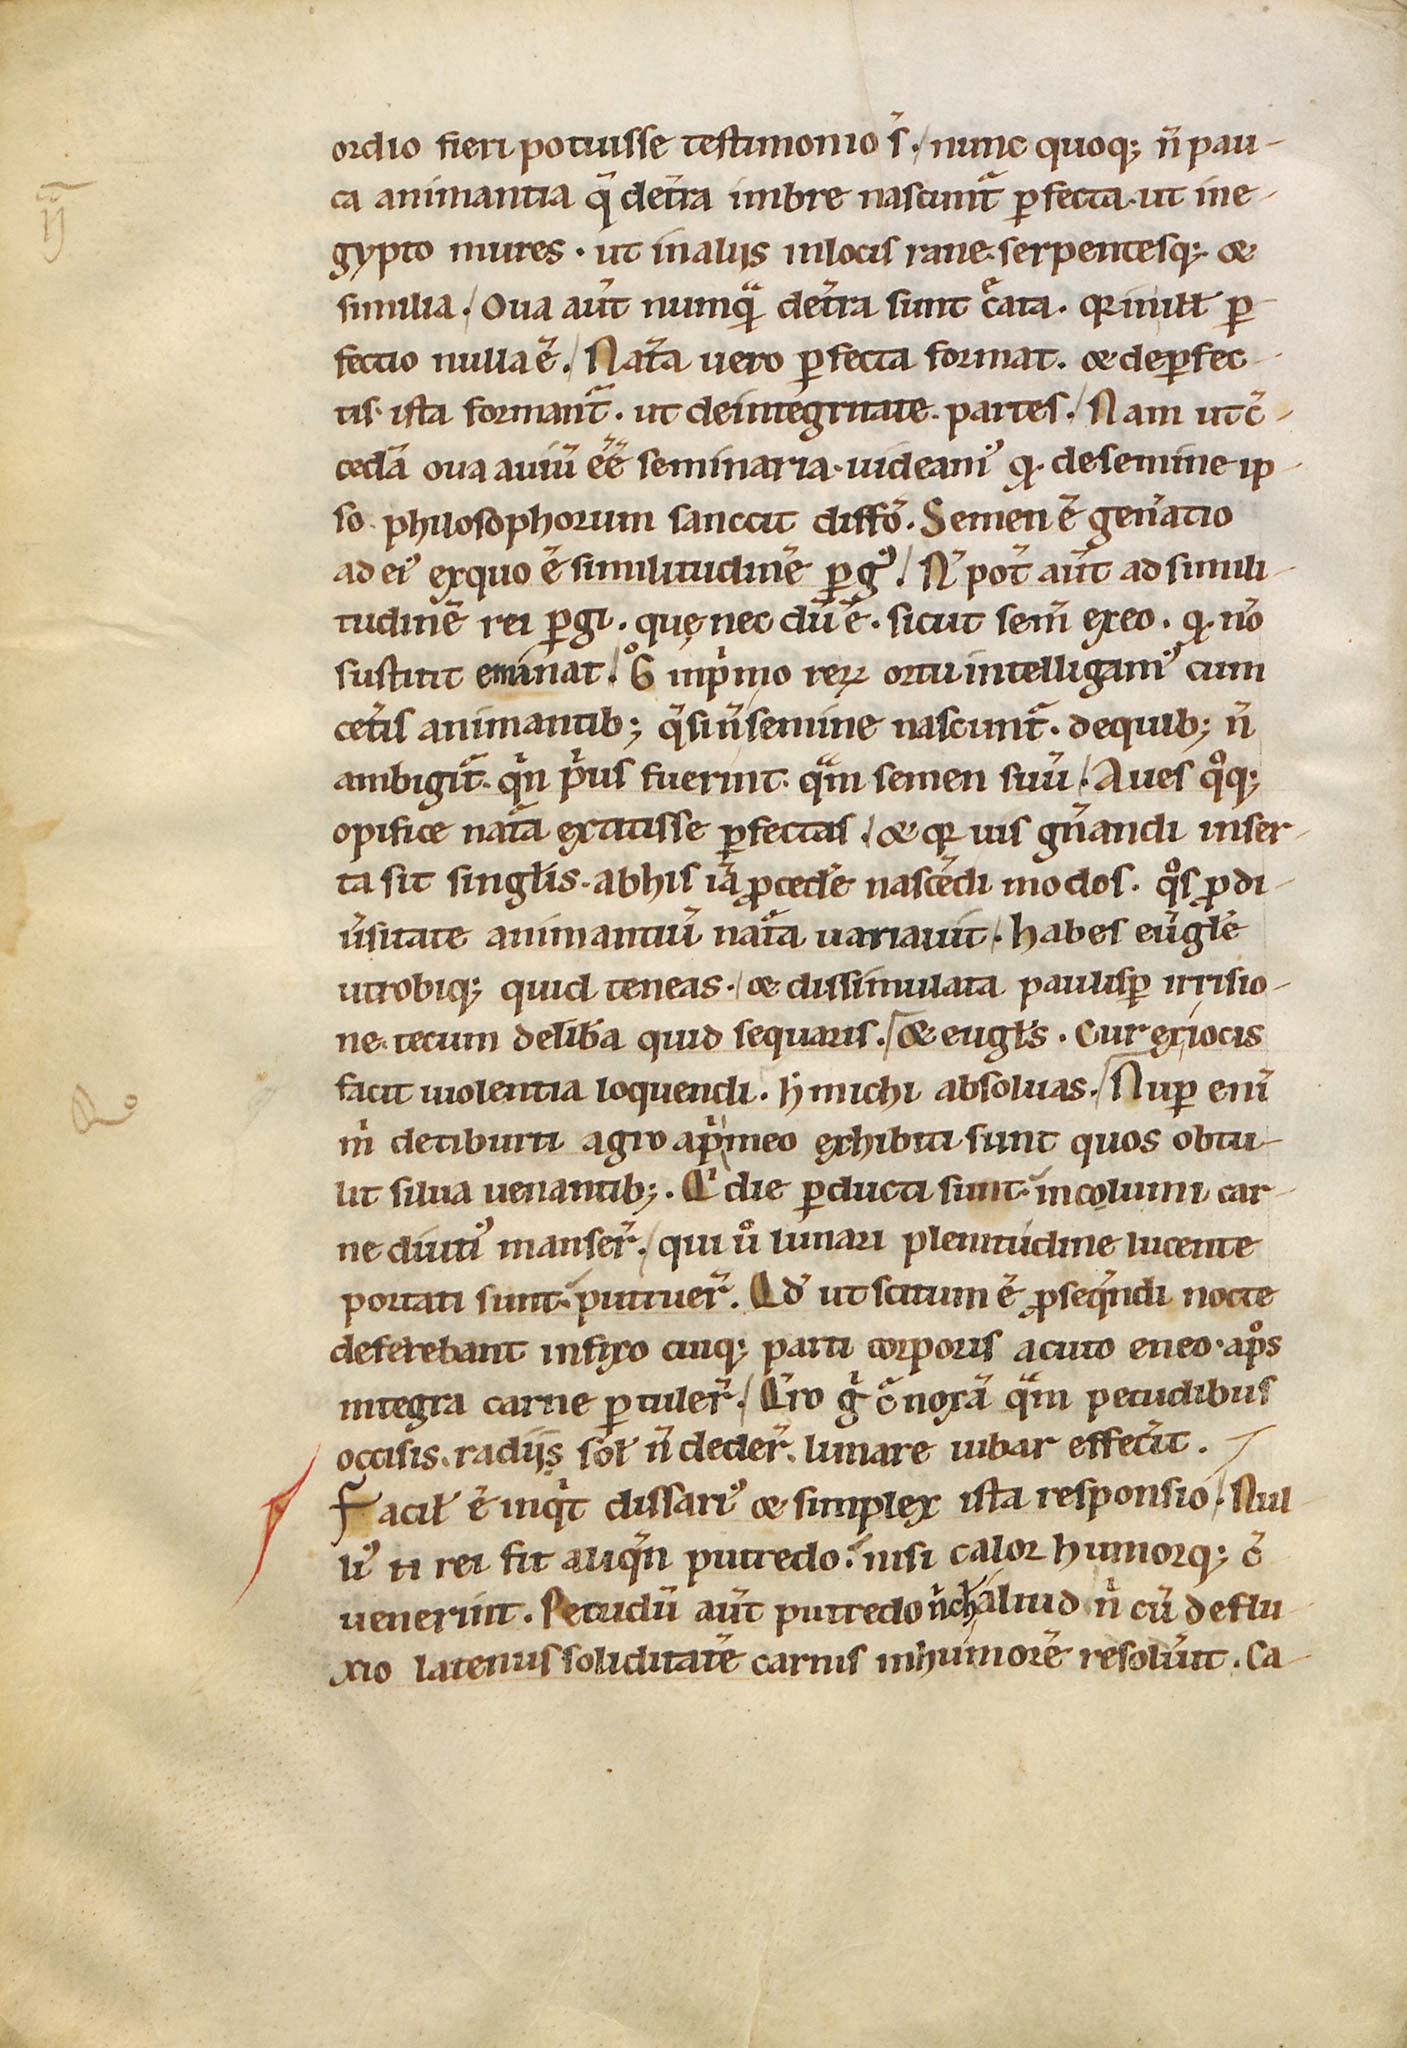 ordio fieri potuisse testimonio s̄. nunc quoq; n̄ pau-
ca animantia q̄ det̄ra imbre nascunt᷑ ꝑfecta. ut ine-
gypto mures. ut inalijs inlocis rane. serpentesq; &
similia. Oua aūt numq̄ᷓ det̄ra sunt c̄ᷓata. qꝛ inill' ꝑ
fectio nulla ē. Nat᷑a uero ꝑfecta format. & deꝑfec-
tis. ista formant᷑. ut deintegritate. partes. Nam ut c̄-
cedā oua auiū ēē seminaria. uideam᷒ qꝛ desemine ip-
so. philosophorum sanccit diffō. Semen ē gen̄atio
ad ei᷒ exquo ē similitudinē ꝑg᷒. N̄ pot̄ aūt ad simili-
tudinē rei ꝑgi. quę nec dū ē. sicut sem̄ exeo. qꝛ nō
sustitit eminat. Gͦ inpͥmo reꝝ ortu intelligam᷒ cum
cet̄is animantib; q̄ sin̄ semine nascunt᷑. dequib; n̄
ambigit᷑. qͥn pͥus fuerint. qᷓm semen suū. Aues qͦq;
opifice nat᷑a extitisse ꝑfectas. & qꝛ uis gn̄andi inser-
ta sit singlis̄. abhis iā ꝓced̄e nascēdi modos. qͦs ꝓ di-
ūsitate animantiū nat᷑a uariauit. habes eūgłe
utrobiq; quid teneas. & dissimulata paulisꝑ irrisio-
ne. tecum delib̄a quid sequaris. & eugłs. Cur exiocis
facit uiolentia loquendi. h̄ michi absoluas. Nuꝑ eni᷒
m̄ detiburti agro apͥ meo exhibiti sunt quos obtu-
lit silua uenantib;. Qͥ die ꝑducti sunt. incolumi car-
ne diuti᷒ manser̄. qui uͦ lunari plenitudine lucente
portati sunt. putruer̄. Qd̄ ut scitum ē ꝓseqn̄di nocte
deferebant infixo cuiq; parti corporis acuto eneo. apͦs
integra carne ꝑtuler̄. Q̄ro gͥ c̄ noxā qᷓm pecudibus
occisis. radijs sol' n̄ deder̄. lunare iubar effecīt.
Facil' ē inqͥt dissari᷒ & simplex ista responsio. Nul
li᷒ ti rei fit aliqn̄ putredo. nisi calor humorq; c̄
uenerint. Pecudū aūt putredo n̄ch aliud n̄ cū deflu-
xio latenus soliditatē carnis inhumorē resolūit. Ca-